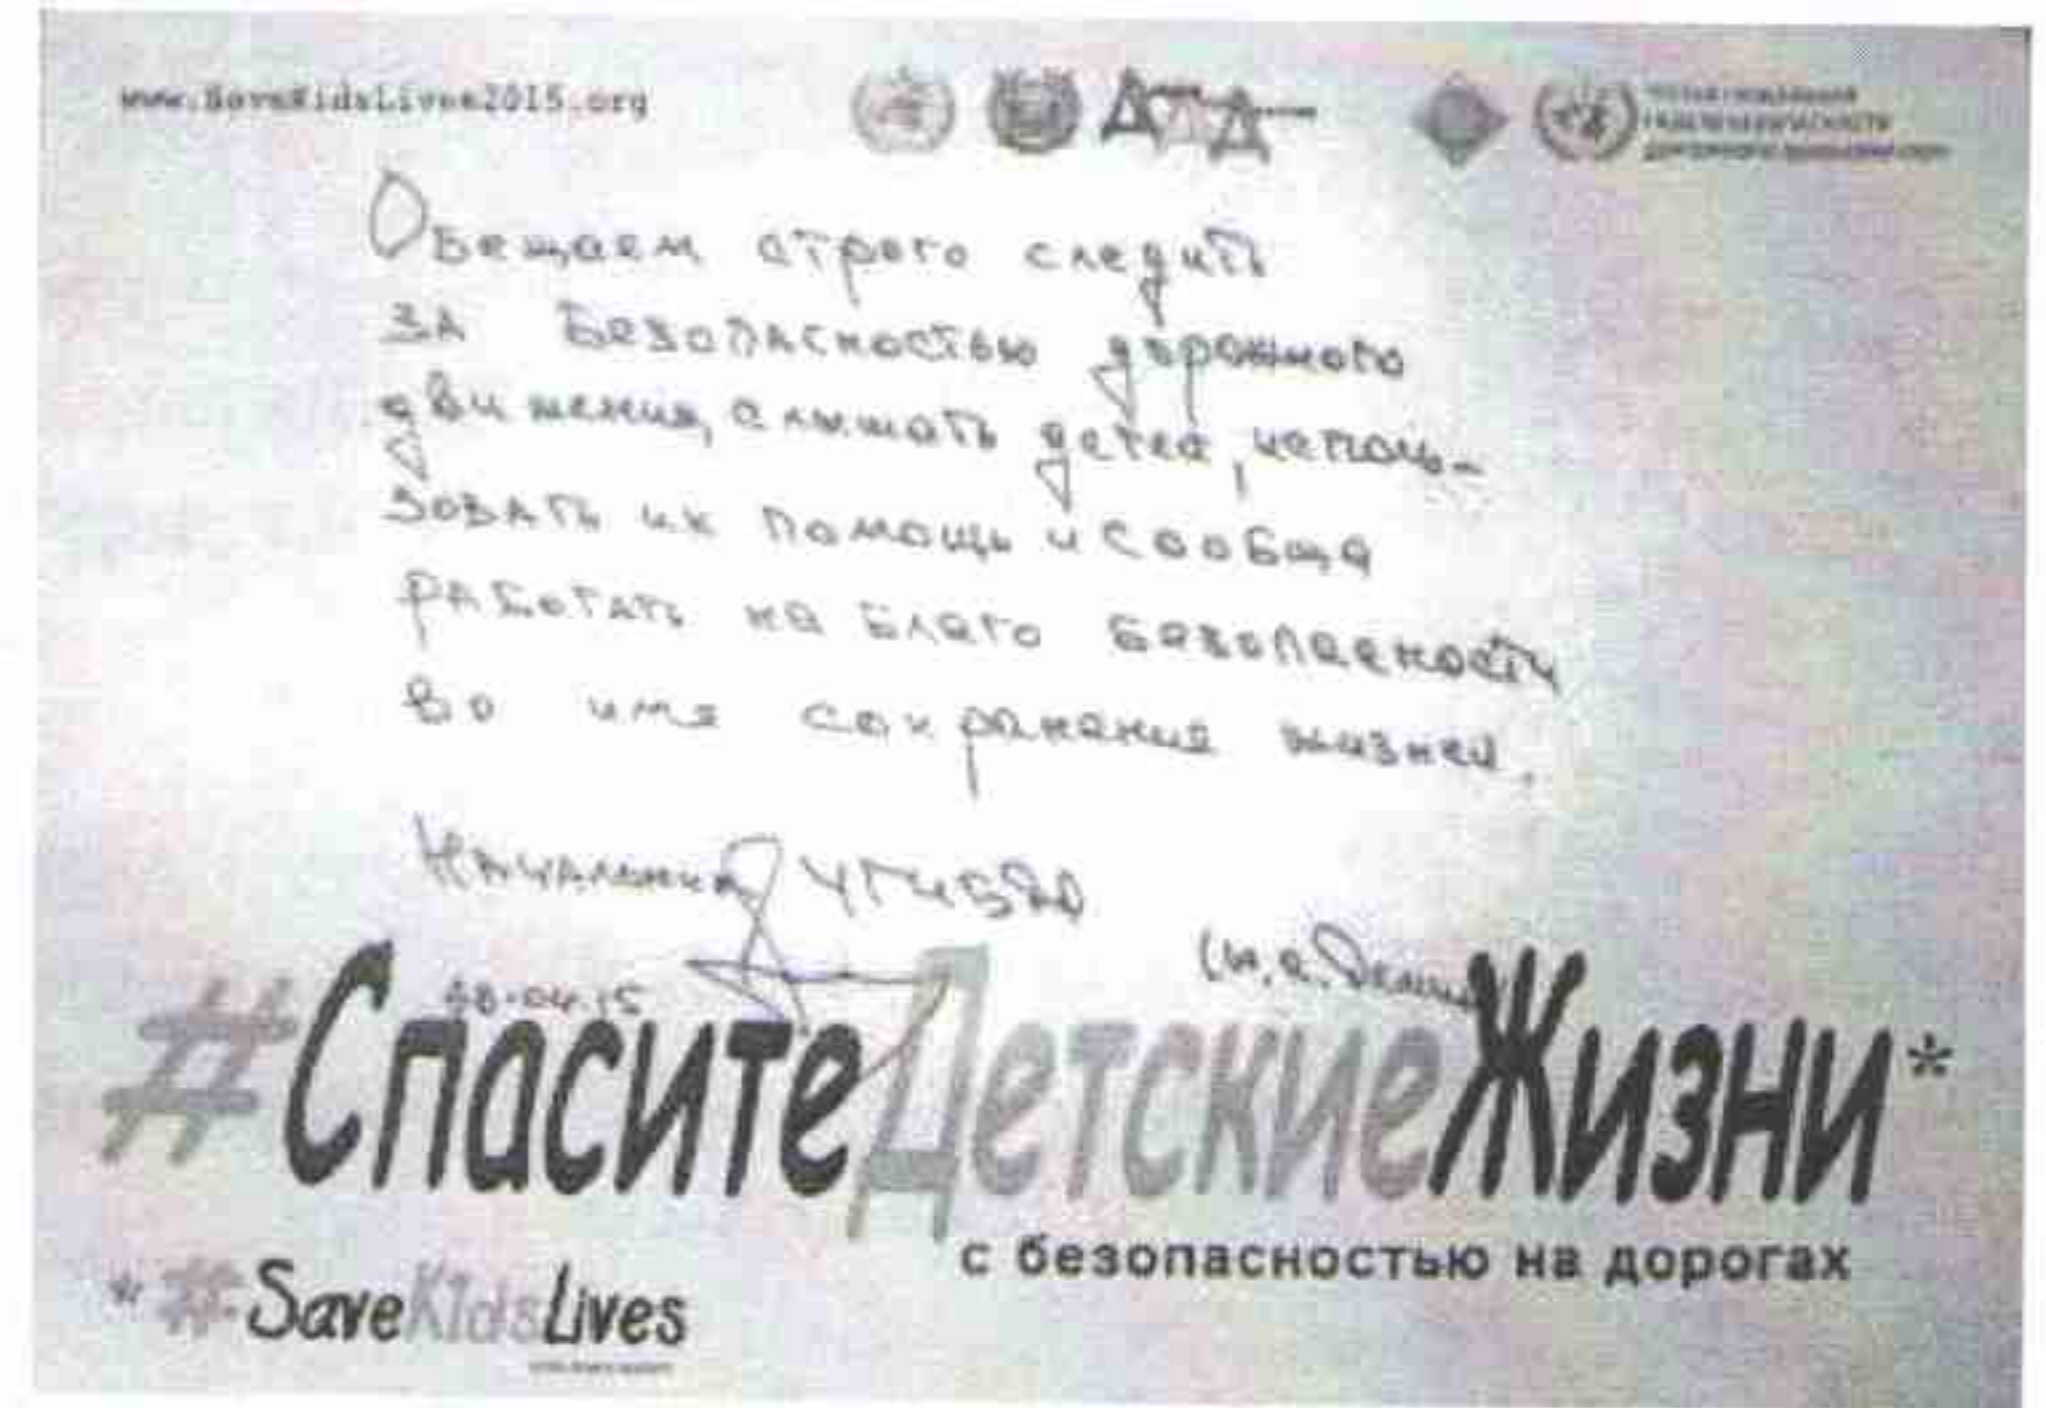 www.SaveKidsLives2015.org
Обещаем строго следить
за безопасностью дорожного
движения, слышать детей, исполь-
зовать их помощь и сообща
работать на благо безопасности
во имя сохранения жизней.
Начальник УГИБДД
28.04.15
#СпаситеДетскиеЖизни*
с безопасностью на дорогах
*#SaveKidsLives